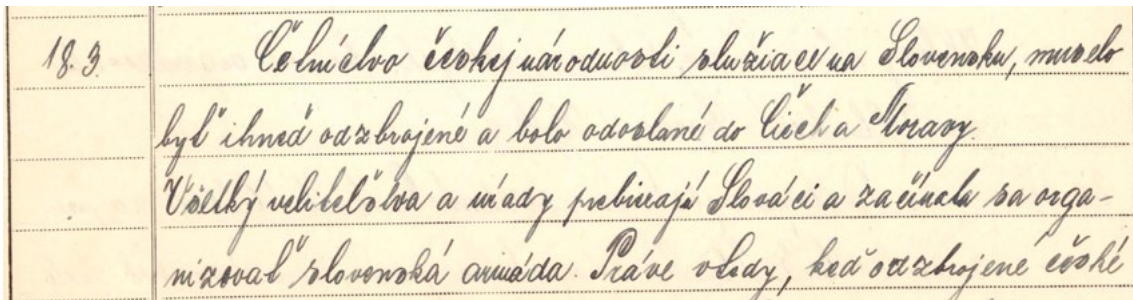 18.3. Četníctvo českej národnosti slúžiace na Slovensku, muselo
byť ihneď odzbrojené a bolo odoslané do Čiech a Moravy.
Všetký veliteľstva a úrady prebierajú Slováci a začínala sa orga-
nizovať slovenská armáda. Práve vtedy, keď odzbrojené české